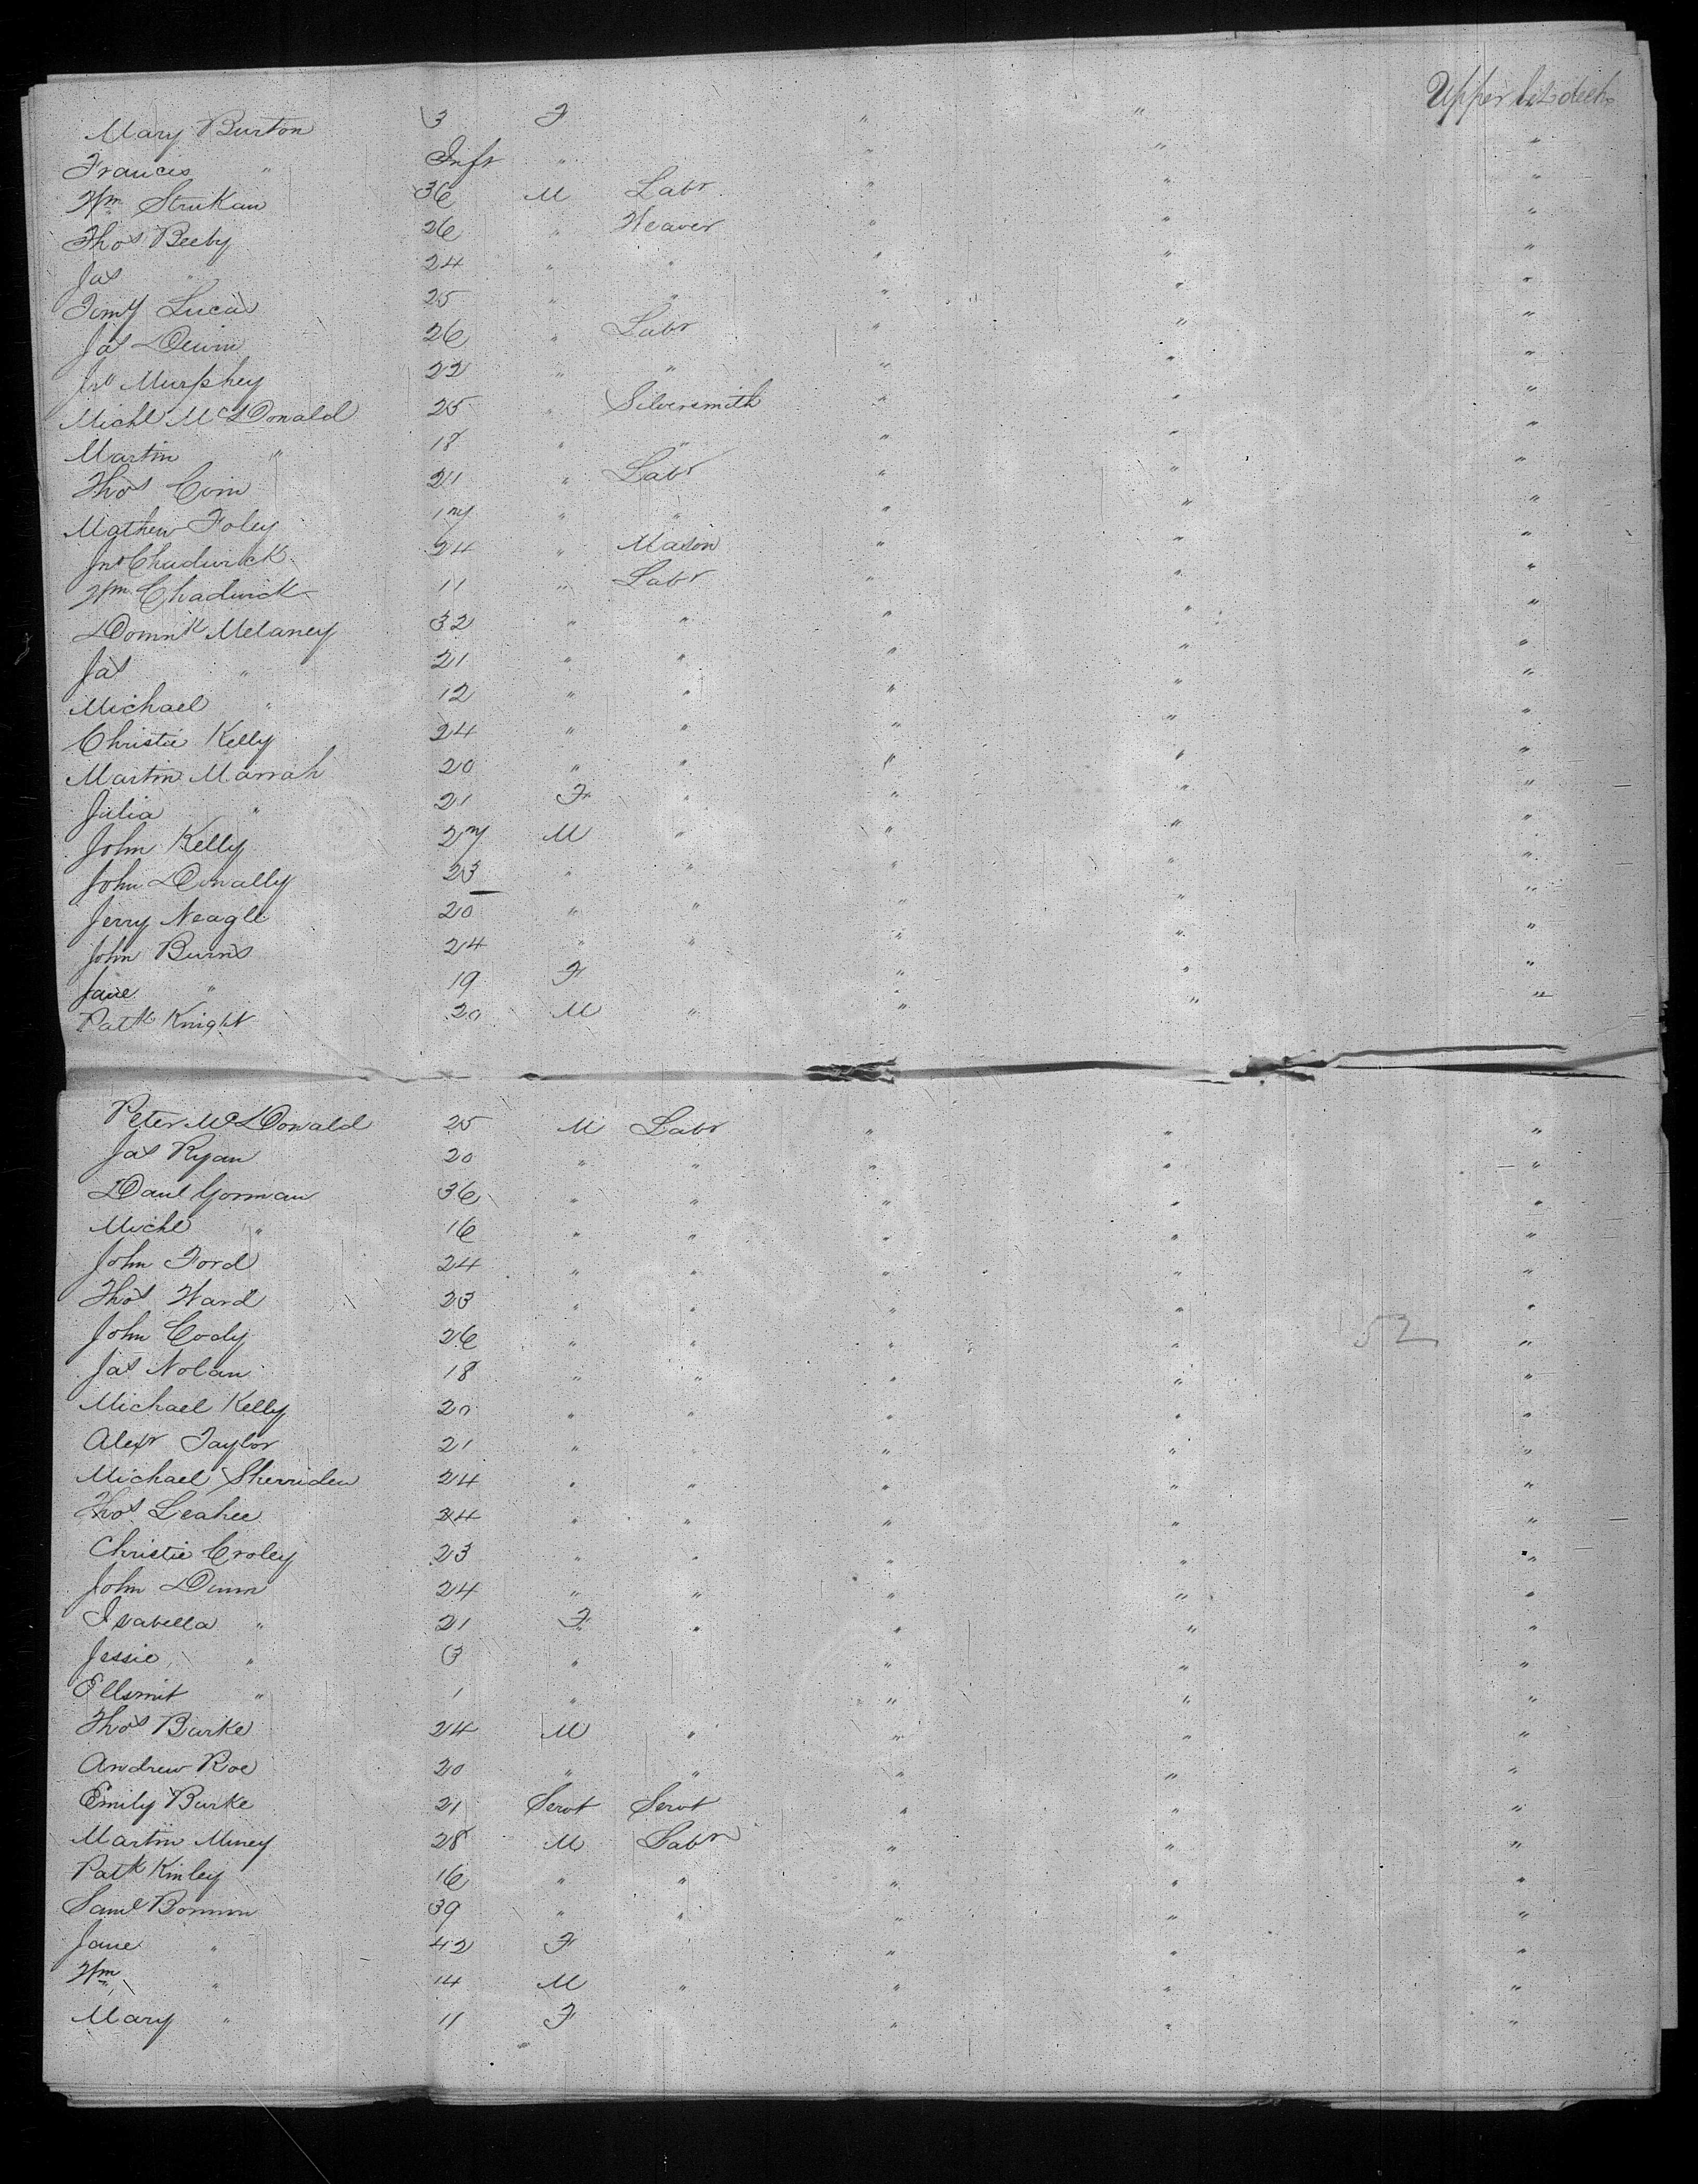 Upper bet. deck
Mary Burton 3 F " "
Francis " Inft " " " "
Wm Strukan 36 M Labr " " "
Thos Beeby 26 " Weaver " " "
Jas " 24 " " " " "
Timy Lucas 25 " " " " "
Jas Dunn 26 " Labr " " "
Jno Murphey 22 " " " " "
Michl McDonald 25 " Silversmith " " "
Martin " 18 " " " " "
Thos Corn 21 " Labr " " "
Mathew Foley 17 " " " " "
Jno Chadwick 24 " Mason " " "
Wm Chadwick 11 " Labr " " "
Domnk Melaney 32 " " " " "
Jas " 21 " " " " "
Michael " 12 " " " " "
Christie Kelly 24 " " " " "
Martin Marrah 20 " " " " "
Julia " 21 F " " " "
John Kelly 27 M " " " "
John Donally 23 " " " " "
Jerry Neagle 20 " " " " "
John Burns 24 " " " " "
Jane " 19 F " " "
Patk Knight 20 M " " " "
Peter McDonald 25 M Labr " " "
Jas Ryan 20 " " " " "
Danl Gorman 36 " " " " "
Michl " 16 " " " " "
John Ford 24 " " " " "
Thos Ward 23 " " " " "
John Cody 26 " " " " 52 "
Jas Nolan 18 " " " " "
Michael Kelly 20 " " " " "
Alexr Taylor 21 " " " "
Michael Sherriden 24 " " " " "
Thos Leahee 24 " " " " "
Christie Croley 23 " " " " "
John Dunn 24 " " " " "
Isabella " 21 F " " " "
Jessie " 3 " " " " "
Ellsmit " 1 " " " "
Thos Burke 24 M " " " "
Andrew Roe 20 " " " " "
Emily Burke 21 Servt Servt " " "
Martin Miney 28 M Labr " " "
Patk Kinley 16 " " " " "
Saml Bonnon 39 " " " " "
Jane " 42 F " " "
Wm " 14 M " " " "
Mary " 11 F " " "